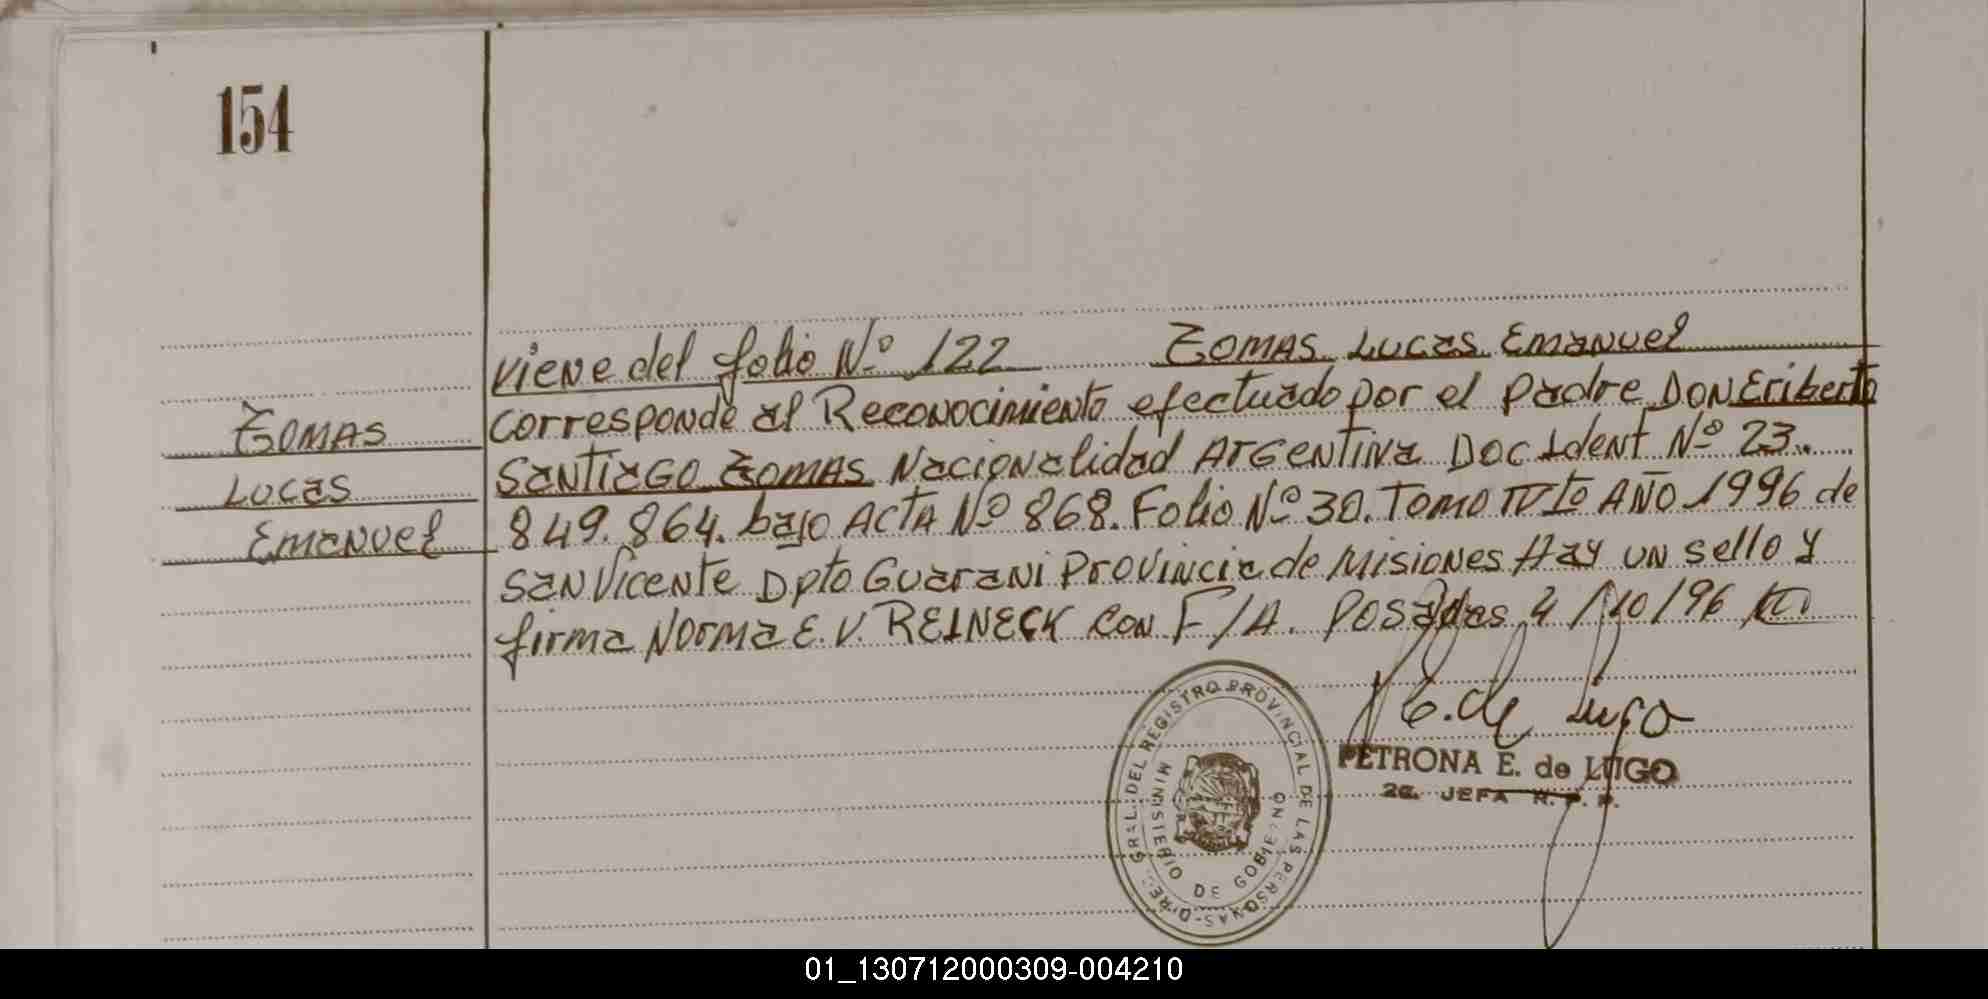 154
viene del folio Nº 122 Zomas Lucas Emanuel
corresponde al Reconocimiento efectuado por el Padre DON Eriberto
Zomas
SANTIAGO Zomas Nacionalidad ARGENTINA Doc Ident Nº 23.
Lucas
849.864. bajo ACTA Nº 868. Folio Nº 30. TOMO IVto AÑO 1996 de
Emanuel
SAN Vicente Dpto Guarani Provincia de Misiones Hay un sello y
firma Norma E. V. REINECK con F/A. Posadas 4/10/96
E. de Lugo
PETRONA E. de LUGO
2a. JEFA R. P. P.
DIREC. GRAL. DEL REGISTRO PROVINCIAL DE LAS PERSONAS
MINISTERIO DE GOBIERNO
01_130712000309-004210